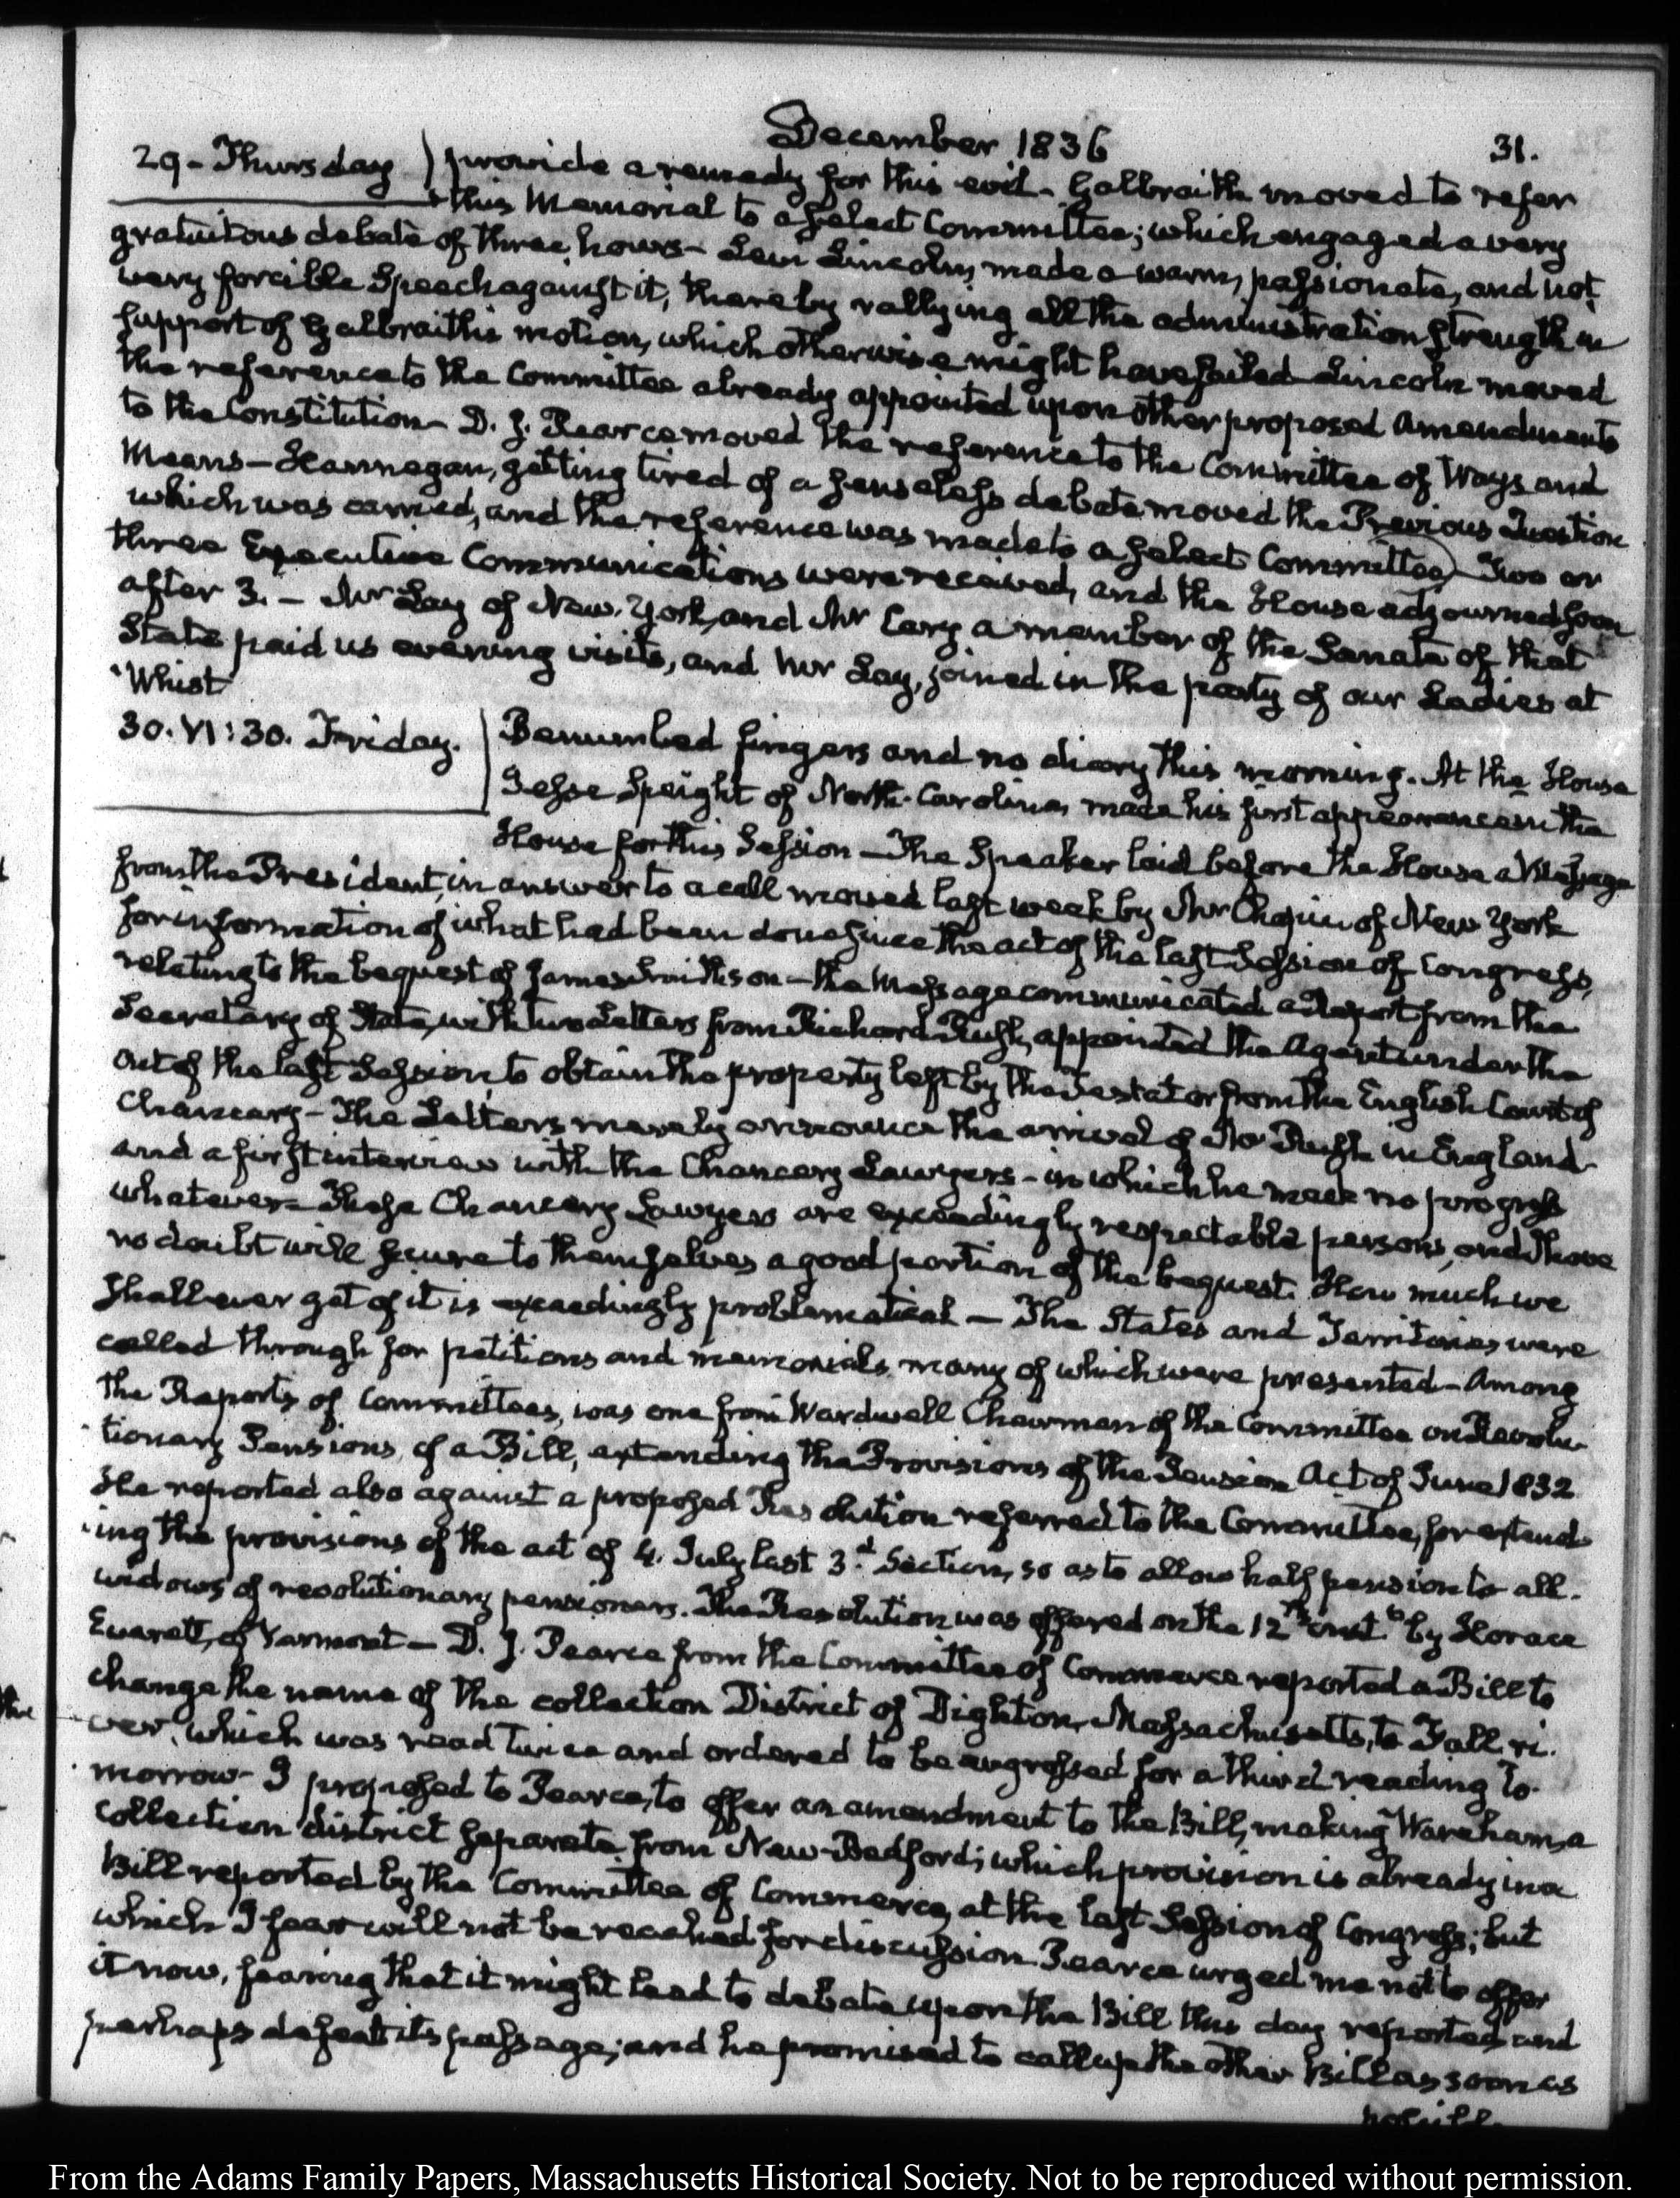 December 1836
31.
29 - Thursday provide a remedy for this evil - Galbraith moved to refer
this Memorial to a select Committee; which engaged a very
gratuitous debate of three hours - Levi Lincoln, made a warm, passionate, and not
very forcible Speech against it, thereby rallying all the administration strength in
support of Galbraith's motion, which otherwise might have failed - Lincoln moved
the reference to the Committee already appointed upon other proposed Amendments
to the Constitution - D. J. Pearce moved the reference to the Committee of Ways and
Means - Hannegan, getting tired of a senseless debate moved the Previous Question
which was carried, and the reference was made to a select Committee - Two or
three Executive Communications were received, and the House adjourned soon
after 3. - Mr Lay of New-York, and Mr Cary a member of the Senate of that
State paid us evening visits, and Mr Lay, joined in the party of our Ladies at
Whist
30. VI:30. Friday. Benumbed fingers and no diary this morning. At the House
Jesse Speight of North-Carolina, made his first appearance in the
House for this Session - The Speaker laid before the House a Message
from the President, in answer to a call moved last week by Mr Chapin of New York
for information of what had been done since the act of the last Session of Congress,
relating to the bequest of James Smithson - the Message communicated a Report from the
Secretary of State, with two Letters from Richard Rush, appointed the Agent under the
Act of the last Session, to obtain the property left by the Testator from the English Court of
Chancery - The Letters merely announce the arrival of Mr Rush in England
and a first interview with the Chancery Lawyers - in which he made no progress
whatever - These Chancery Lawyers are exceedingly respectable persons, and I have
no doubt will secure to themselves a good portion of the bequest. How much we
shall ever get of it is exceedingly problematical - The States and Territories were
called through for petitions and memorials, many of which were presented - Among
the Reports of Committees, was one from Wardwell Chairman of the Committee on Revolu-
tionary Pensions, of a Bill, extending the Provisions of the Pension Act of June 1832
He reported also against a proposed Resolution referred to the Committee, for extend-
ing the provisions of the act of 4. July last 3d. Section, so as to allow half pension to all
widows of revolutionary pensioners. The Resolution was offered on the 12th instt. by Horace
Everett, of Vermont - D. J. Pearce from the Committee of Commerce reported a Bill to
change the name of the collection District of Dighton, Massachusetts, to Fall ri-
ver, which was read twice and ordered to be engrossed for a third reading to-
morrow - I proposed to Pearce, to offer an amendment to the Bill, making Wareham, a
collection district separate from New-Bedford; which provision is already in a
Bill reported by the Committee of Commerce, at the last Session of Congress; but
which I fear will not be reached for discussion. Pearce urged me not to offer
it now, fearing that it might lead to debate upon the Bill this day reported, and
perhaps defeat its passage; and he promised to call up the other Bill as soon as
possible
From the Adams Family Papers, Massachusetts Historical Society. Not to be reproduced without permission.